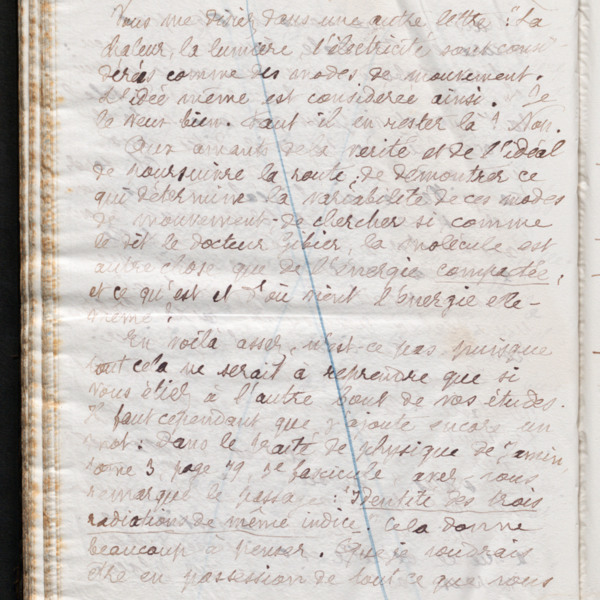 Vous me disiez dans une autre lettre : "La
chaleur, la lumière, l'électricité sont consi
dérés comme des modes de mouvement.
L'idée même est considerée ainsi. Je
le veux bien. Faut il en rester là ? Non.
Aux amants de la verité et de l'idéal
de poursuivre la route ; de demontrer ce
qui détermine la variabilité de ces modes
de mouvement - de chercher si comme
le dit le docteur Gibier, la molécule est
autre chose que de l'énergie compactée,
et ce qu'est et d'où vient l'énergie elle-
même ?
En voilà assez, n'est-ce pas, puisque
tout cela ne serait à reprendre que si
vous étiez à l'autre bout de vos études.
Il faut cependant que j'ajoute encore un
mot : dans le traité de physique de Jamin
tome 3, page 79, 3e fascicule avez vous
remarqué le passage : "Identité des trois
radiations de même indice". Cela donne
beaucoup à penser. Que je voudrais
être en possession de tout ce que vous